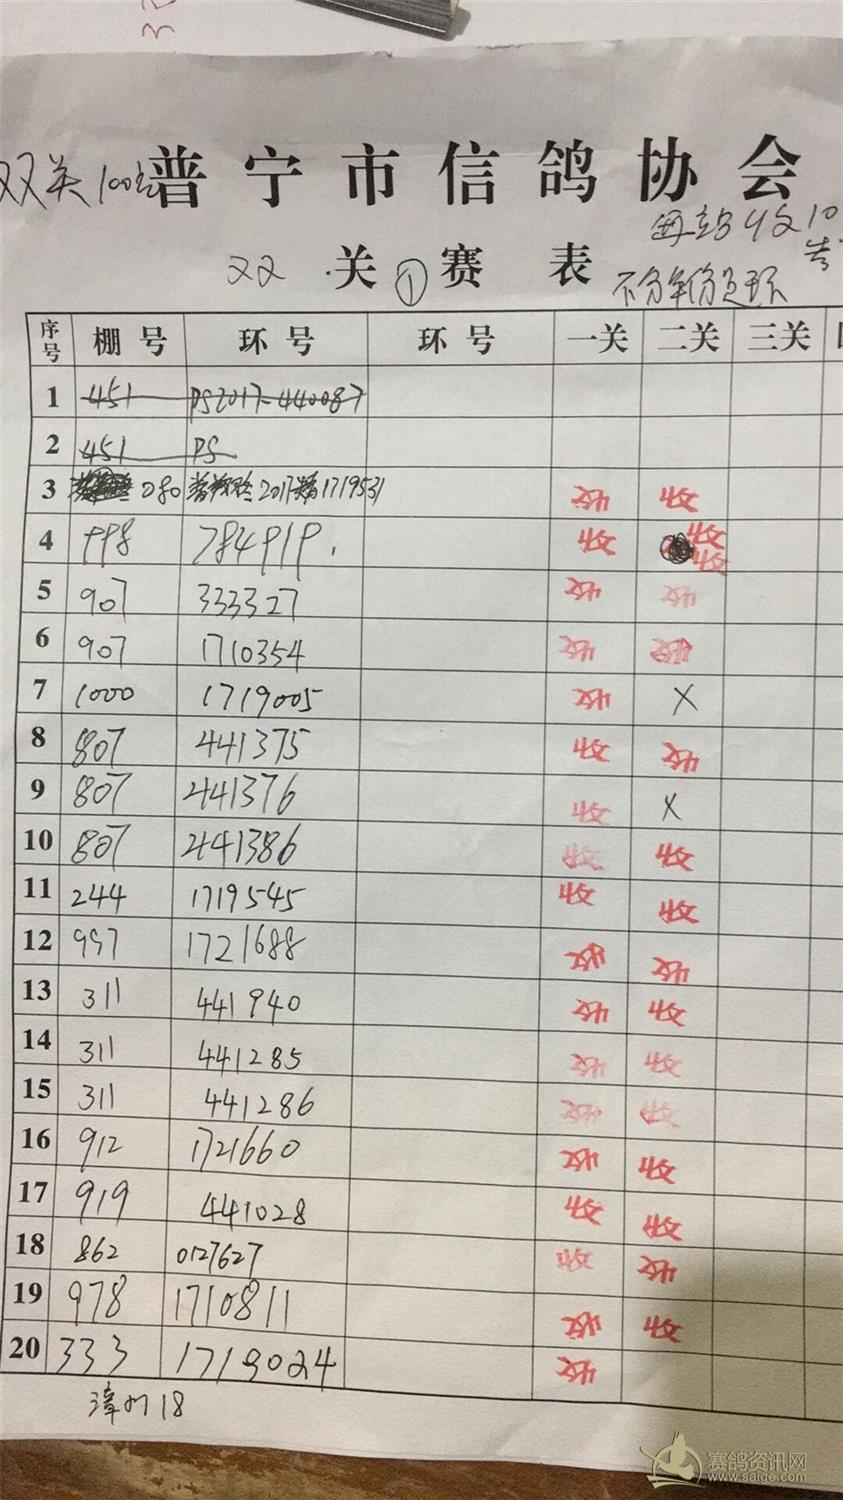 双关100名
普宁市信鸽协会
每站收10
双·关①赛表
不分年份足环
序号 棚号 环号 环号 一关 二关 三关
1 451 PS2017-440087
2 451 PS
3 080 2017 1719531 收
4 998 784919.
5 907 333327 收 收
6 907 1710354 收
7 1000 1719005 收 X
8 807 441375 收
9 807 441376 X
10 807 441386
11 244 1719545
12 997 1721688 收 收
13 311 441940 收
14 311 441285 收
15 311 441286
16 912 1721660 收
17 919 441028
18 862 0127627 收
19 978 1710811 收
20 333 1719024 收
漳州18
赛鸽资讯网
www.saige.com